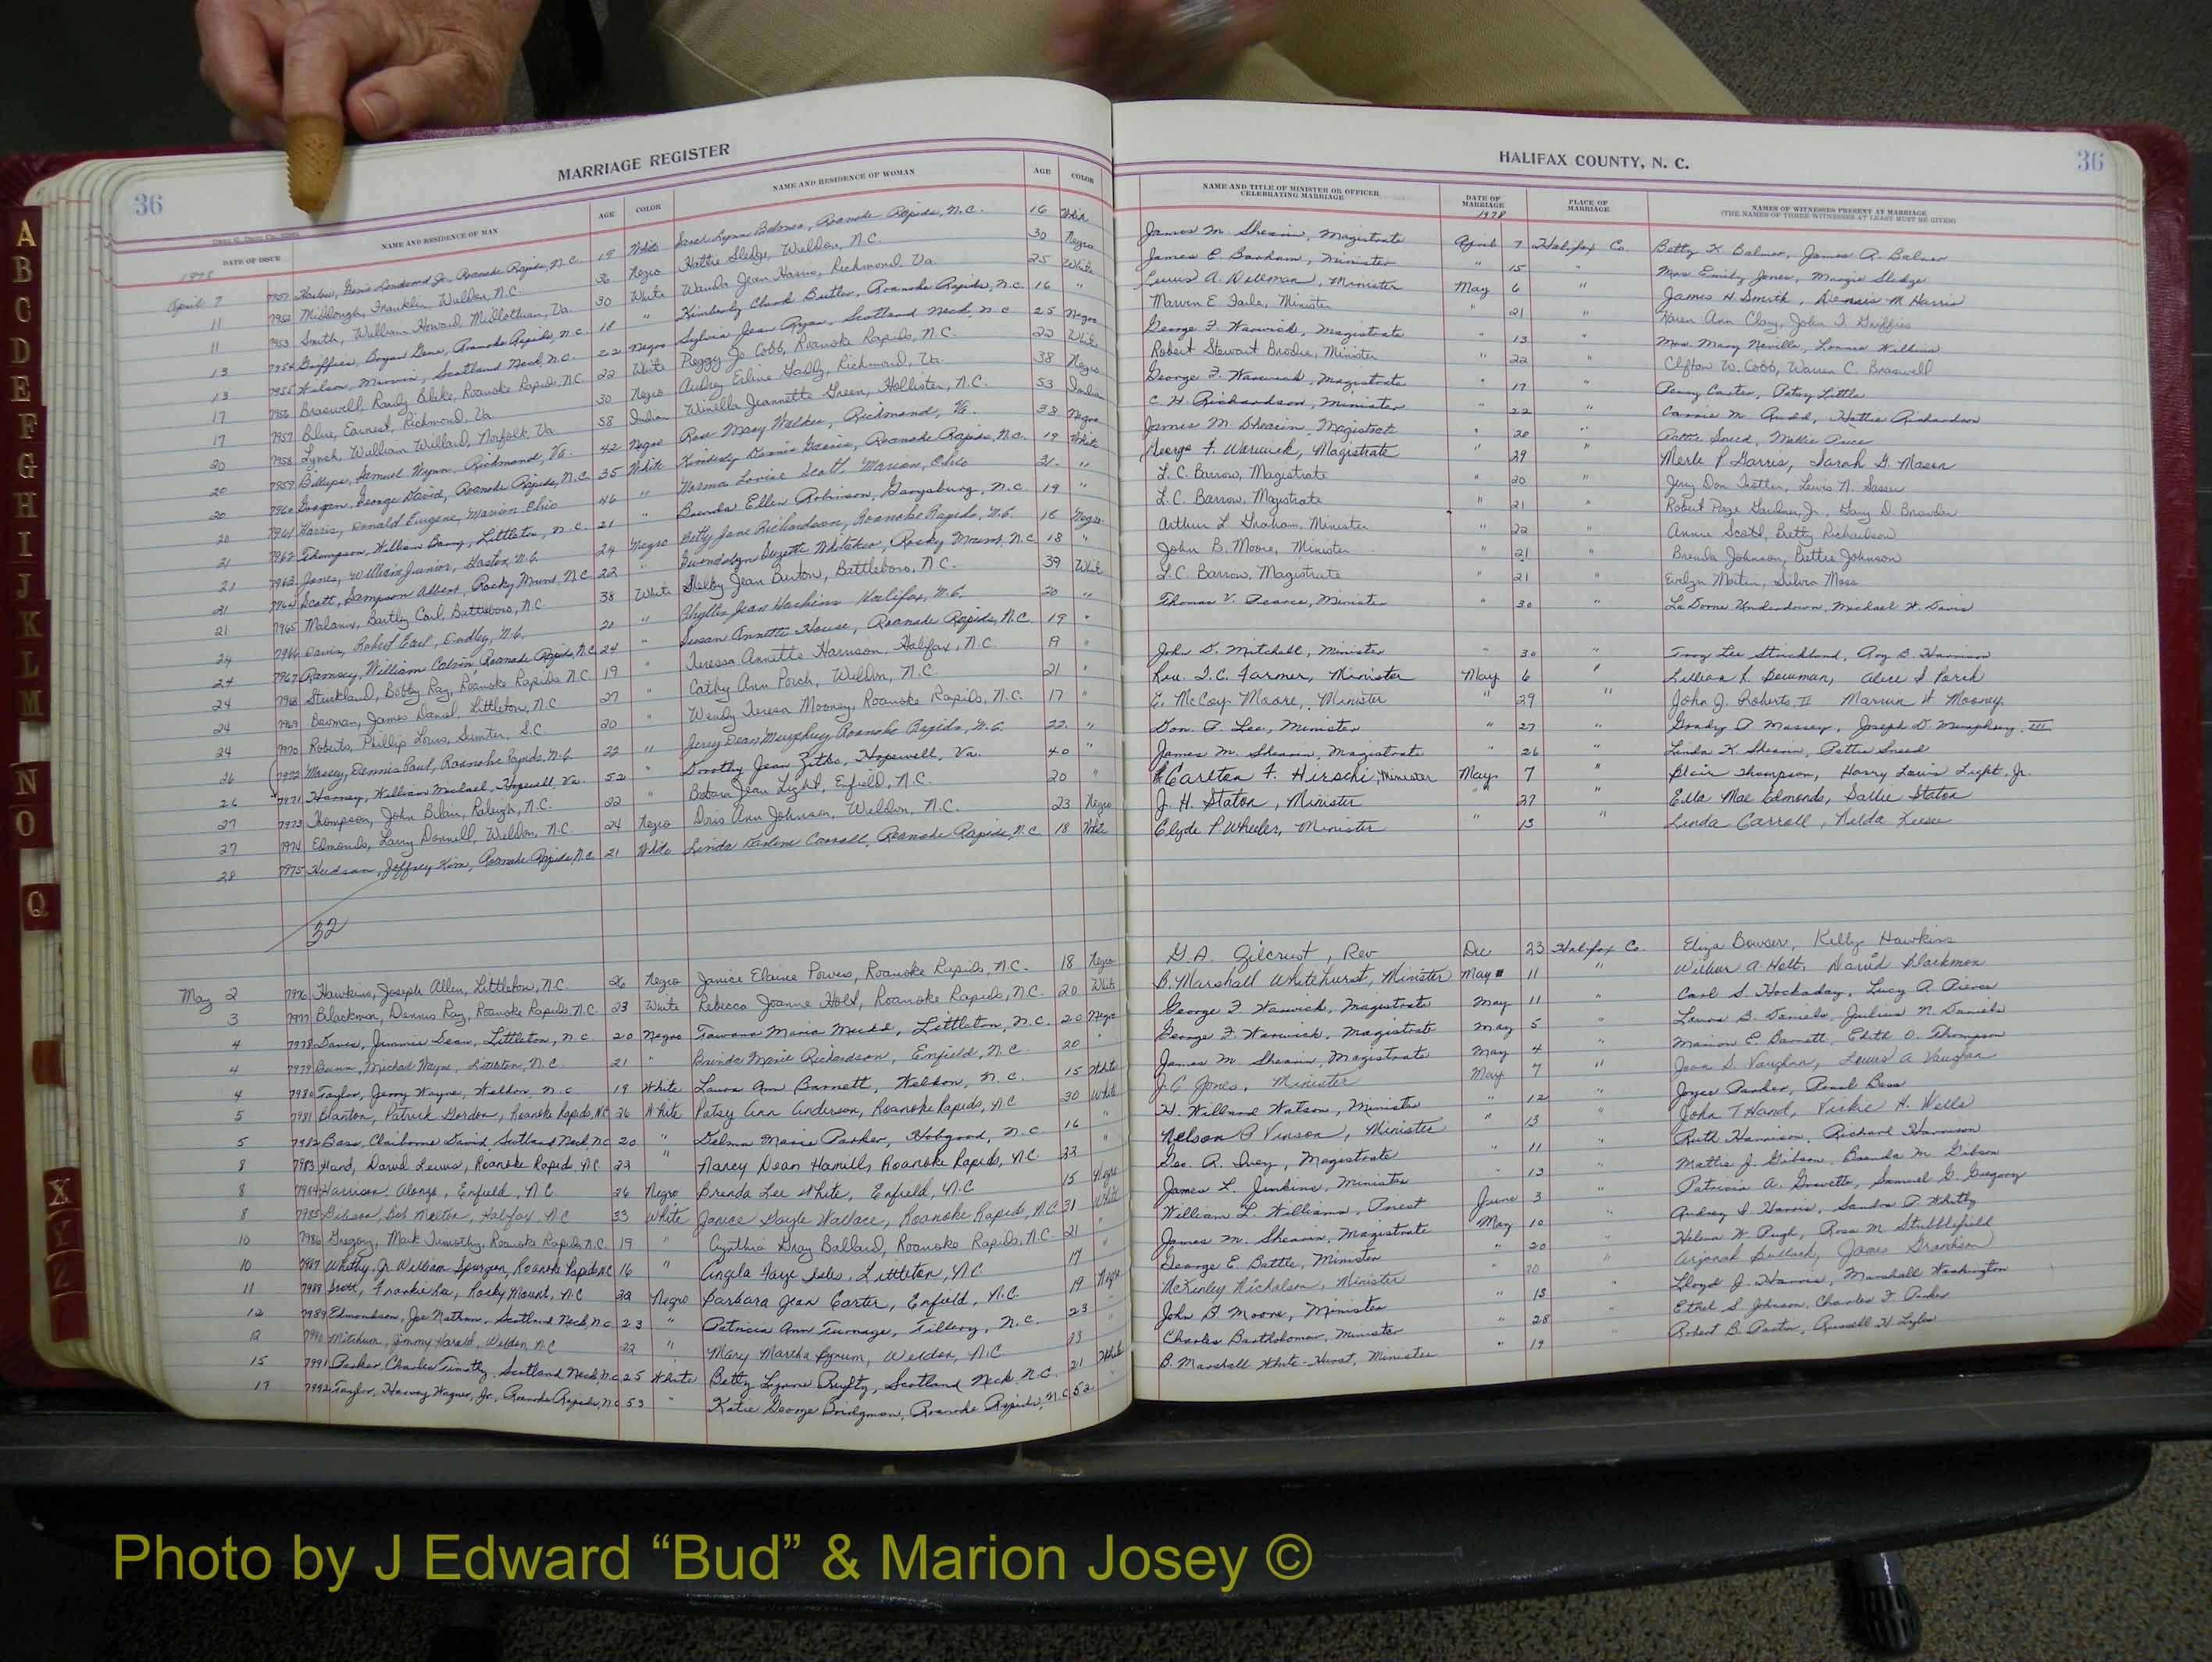 MARRIAGE REGISTER
36
DATE OF ISSUE NAME AND RESIDENCE OF MAN AGE COLOR NAME AND RESIDENCE OF WOMAN AGE COLOR
1978
April 7 7951 Jr., Roanoke Rapids, N.C. 19 White Sarah Lynn Balmer, Roanoke Rapids, N.C. 16 White
11 7952 Franklin, Weldon, N.C. 36 Negro Hattie Sledge, Weldon, N.C. 30 Negro
11 7953 Smith, William Howard, Midlothian, Va 30 White Wanda Jean Harris, Richmond, Va. 25 White
13 7954 Griffies, Bryan Gene, Roanoke Rapids, N.C. 18 " Kimberly Clark Butler, Roanoke Rapids, N.C. 16 "
13 7955 Wilson, Marvin, Scotland Neck, N.C. 22 Negro Sylvia Jean Ryan, Scotland Neck, N.C. 25 Negro
17 7956 Braswell, Randy Blake, Roanoke Rapids, N.C. 22 White Peggy Jo Cobb, Roanoke Rapids, N.C. 22 White
17 7957 Blue, Earnest, Richmond, Va. 30 Negro Audrey Erline Gaddy, Richmond, Va. 38 Negro
20 7958 Lynch, William Willard, Norfolk, Va 58 Indian Winella Jeannette Green, Hollister, N.C. 53 Indian
20 7959 Billups, Samuel Wynn, Richmond, Va. 42 Negro Rose Mary Walker, Richmond, Va. 38 Negro
20 7960 George David, Roanoke Rapids, N.C. 35 White Kimberly Roanoke Rapids, N.C. 19 White
20 7961 Harris, Donald Eugene, Marion Ohio 46 " Norma Louise Scott, Marion, Ohio "
21 7962 Thompson, William Barry, Littleton, N.C. 21 " Brenda Ellen Robinson, Garysburg, N.C. 19 "
21 7963 Jones, William Junior, Gaston, N.C. 24 Negro Betty Jane Richardson, Roanoke Rapids, N.C. Negro
21 7964 Scott, Sampson Albert, Rocky Mount, N.C. 22 " Gwendolyn Suzette Whitaker, Rocky Mount, N.C. 18 "
21 7965 Bartley Carl, Battleboro, N.C. 38 White Shelby Jean Burton, Battleboro, N.C. 39 White
24 7966 Davis, Robert Earl, N.C. " Phyllis Jean Haskins Halifax, N.C. 20 "
24 7967 Ramsey, William Calvin Roanoke Rapids, N.C. 24 " Susan Annette House, Roanoke Rapids, N.C. 19 "
24 7968 Strickland, Bobby Ray, Roanoke Rapids N.C. 19 " Teressa Annette Harrison, Halifax, N.C. "
24 7969 Bowman, James Daniel, Littleton, N.C. 27 " Cathy Ann Porch, Weldon, N.C. 21 "
24 7970 Roberts, Phillip Louis, Sumter, S.C. 20 " Wendy Teresa Mooney, Roanoke Rapids, N.C. 17 "
26 7972 Massey, Dennis Paul, Roanoke Rapids, N.C. 22 " Jerry Dean Murphrey Roanoke Rapids, N.C. 22 "
26 7971 William Michael, Hopewell, Va. 52 " Dorothy Jean Hopewell, Va. 40 "
27 7973 Thompson, John Blair, Raleigh, N.C. 22 " Barbara Jean Light, Enfield, N.C. 20 "
27 7974 Edmonds, Larry Donnell, Weldon, N.C. 24 Negro Doris Ann Johnson, Weldon, N.C. 23 Negro
28 7975 Hudson, Jeffrey Kim, Roanoke Rapids, N.C. 21 White Linda Darlene Carroll, Roanoke Rapids, N.C. 18 White
32
May 2 7976 Hawkins, Joseph Allen, Littleton, N.C. 26 Negro Janice Elaine Powers, Roanoke Rapids, N.C. 18 Negro
3 7977 Blackmon, Dennis Ray, Roanoke Rapids, N.C. 23 White Rebecca Joanne Holt, Roanoke Rapids, N.C. 20 White
4 7978 Jimmie Dean, Littleton, N.C. 20 Negro Tawana Maria Littleton, N.C. 20 Negro
4 7979 Bunn, Michael Wayne, Littleton, N.C. 21 " Brinda Marie Richardson, Enfield, N.C. 20 "
4 7980 Taylor, Jerry Wayne, Weldon, N.C. 19 White Laura Ann Barnett, Weldon, N.C. 15 White
5 7981 Patrick Gordon, Roanoke Rapids, NC 26 White Patsy Ann Anderson, Roanoke Rapids, N.C. 30 White
5 7982 Bass, Claiborne David Scotland Neck N.C. 20 " Delma Marie Parker, Hobgood, N.C. 16 "
8 7983 Hand, David Lewis, Roanoke Rapid, N.C. 23 " Nancy Dean Hamill, Roanoke Rapids, N.C. "
8 7984 Harrison, Alonzo, Enfield, N.C. 26 Negro Brenda Lee White, Enfield, N.C. 15 Negro
8 7985 Gibson, Bob Melton, Halifax, N.C. 33 White Janice Gayle Wallace, Roanoke Rapid, N.C. 31 White
10 7986 Gregory, Mark Timothy, Roanoke Rapids, N.C. 19 " Cynthia Gray Ballard, Roanoke Rapids, N.C. 21 "
10 7987 Whitby, Jr. William Spurgeon, Roanoke Rapids NC 16 " Angela Faye Isles, Littleton, N.C. 17 "
11 7988 Scott, Frankie Lee, Rocky Mount, N.C. Negro Barbara Jean Carter, Enfield, N.C. 19 Negro
12 7989 Edmondson, Joe Nathan, Scotland Neck, N.C. 23 " Patricia Ann Turnage, Tillery, N.C. 23 "
12 7990 Mitchum, Jimmy Harold, Weldon, N.C. " Mary Martha Bynum, Weldon, N.C.
15 7991 Parker, Charles Timothy, Scotland Neck, N.C. 25 White Betty Lynne Rufty, Scotland Neck, N.C. 21 White
17 7992 Taylor, Harvey Wagner, Jr., Roanoke Rapids, N.C. 53 " Katie George Bridgman, Roanoke Rapids, N.C. 52
HALIFAX COUNTY, N. C.
36
NAME AND TITLE OF MINISTER OR OFFICER CELEBRATING MARRIAGE DATE OF MARRIAGE PLACE OF MARRIAGE NAMES OF WITNESSES PRESENT AT MARRIAGE
(THE NAMES OF THREE WITNESSES AT LEAST MUST BE GIVEN)
1978
James M. Shearin, Magistrate April 7 Halifax Co. Betty K. Balmer, James R. Balmer
James E. Barham, Minister " 15 " Mrs Emily Jones, Margie Sledge
Minister May 6 " James H. Smith, Dennis M. Harris
Marvin E. Minister 21 " Karen Ann Clary, John T. Griffies
George F. Warwick, Magistrate " 13 " Mrs. Mary Neville, Lonnie Wilkins
Robert Stewart Brodie, Minister " 22 " Clifton W. Cobb, Warren C. Braswell
George F. Warwick, Magistrate " 17 " Penny Carter, Patsy Little
C. H. Richardson, Minister " 22 " Carrie M. Hattie Richardson
James M. Shearin, Magistrate " 20 " Pattie Sneed, Mollie
George F. Warwick, Magistrate 29 Merle P. Harris, Sarah G. Mason
L. C. Barrow, Magistrate " 20 " Jerry Don Lewis N.
L. C. Barrow, Magistrate 21 " Robert Page Gardner, Jr., Gary D. Browder
Arthur L. Graham, Minister " 22 " Annie Scott, Betty Richardson
John B. Moore, Minister " 21 " Brenda Johnson, Bettie Johnson
L. C. Barrow, Magistrate " 21 " Evelyn Martin, Silvia Moss
Thomas V. Pearce, Minister " 30 " LaDonne Underdown, Michael W. Davis
John D. Mitchell, Minister " 30 " Troy Lee Strickland, Roy B. Harrison
Rev. T.C. Farmer, Minister May 6 " Lillian L. Bowman, Alice S. Porch
E. McCoy Moore, Minister " 29 " John J. Roberts, II Marvin H. Mooney
Don P. Lee, Minister " 27 " Grady D. Massey, Joseph D. Murphrey, III
James M. Shearin, Magistrate " 26 " Linda K. Shearin, Pattie Sneed
Carlton F. Hirschi, Minister May 7 " Blair Thompson, Harry Louis Light, Jr.
J. H. Staton, Minister " 27 " Ella Mae Edmonds, Sallie Staton
Clyde P. Wheeler, Minister " 13 " Linda Carroll, Nelda
G. A. Gilcrist, Rev Dec 23 Halifax Co. Eliza Bowser, Kelly Hawkins
B. Marshall Whitehurst, Minister May 11 " Wilbur A. Holt, David Blackmon
George F. Warwick, Magistrate May 11 " Carl S. Hockaday, Lucy A. Pierce
George F. Warwick, Magistrate May 5 " B. Daniels, Julius N. Daniels
James M. Shearin, Magistrate May 4 " Marion E. Barnett, Edith O. Thompson
J. C. Jones, Minister May 7 " Jean S. Vaughan, Lewis A. Vaughan
H. Willard Watson, Minister " 12 " Joyce Parker, Pearl Bass
Nelson B. Vinson, Minister " 13 " John T. Hand, Vickie H. Wells
Geo. R. Ivey, Magistrate 11 " Ruth Harrison, Richard Harrison
James L. Jenkins, Minister 13 " Mattie J. Gibson, Brenda M. Gibson
William L. Williams, Priest June 3 " Patricia A. Samuel G. Gregory
James M. Shearin, Magistrate May 10 " Audrey I. Harris, Sandra P. Whitby
George E. Battle, Minister " 20 Helena W. Pugh, Rosa M. Stubblefield
McKinley Nicholson, Minister 20 " Bullock, James
John B. Moore, Minister " 13 " Lloyd J. Harris, Marshall Washington
Charles Bartholomew, Minister " 28 " Ethel S. Johnson, Charles F. Parker
B. Marshall White-Hurst, Minister " 19 Robert B. Russell H.
A
B
C
D
E
F
G
H
I
J
K
L
M
N
O
Q
X
Y
Z
Photo by J Edward “Bud” & Marion Josey ©